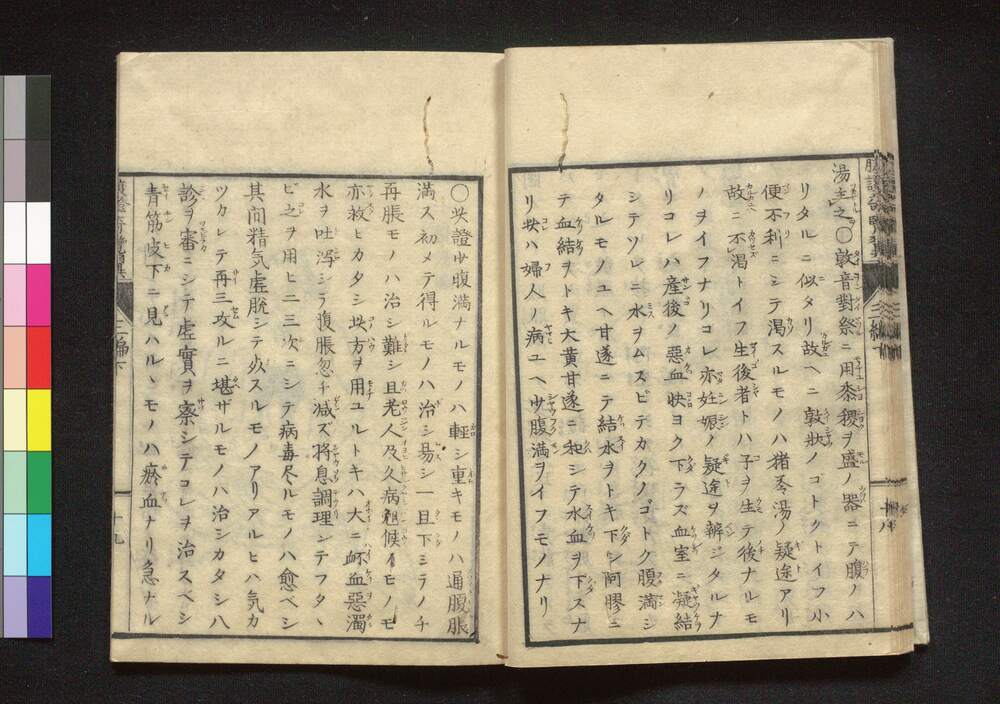 湯主之〇敦音對祭ニ用黍稷ヲ盛ノ器ニテ腹ノハ
リタルニ似タリ故ヘニ敦狀ノゴトクトイフ小
便不利ニシテ渇スルモノハ猪苓湯ノ疑途アリ
故ニ不渇トイフ生後者トハ子ヲ生テ後ナルモ
ノヲイフナリコレ亦妊娠ノ疑途ヲ辨ジタルナ
リコレハ産後ノ惡血快ヨク下ラズ血室ニ凝結
シテソレニ水ヲムスビテカクノゴトク腹満シ
タルモノユヘ甘遂ニテ結水ヲトキ下シ阿膠ニ
テ血結ヲトキ大黄甘遂ニ和シテ水血ヲ下スナ
リ此ハ婦人ノ病ユヘ少腹満ヲイフモノナリ
三編下
十八
〇此證少腹満ナルモノハ輕シ重キモノハ通腹脹
満ス初メテ得ルモノハ治シ易シ一旦下シテノチ
再脹モノハ治シ難シ且老人及久病羸候イモノノモ
亦救ヒカタシ此方ヲ用ユルトキハ大ニ衃血惡濁
水ヲ吐瀉シテ腹脹忽チ減ズ將息調理シテフタヽ
ビ之ヲ用ヒ二三次ニシテ病毒尽ルモノハ愈ベシ
其间精気虚脱シテ死スルモノアリアルヒハ気力
ツカレテ再三攻ルニ堪ザルモノハ治シカタシ八
診ヲ審ニシテ虚實ヲ察シテコレヲ治スベシ
青筋皮下ニ見ハルヽモノハ瘀血ナリ急ナル
三編下
十九